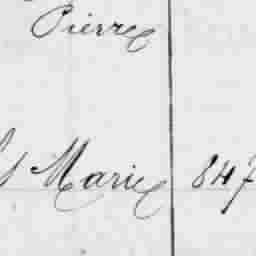 Pierre
Marie 847